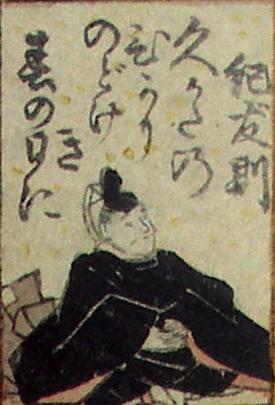 紀友則
久かたの
ひかり
のどけ
き
春の日に